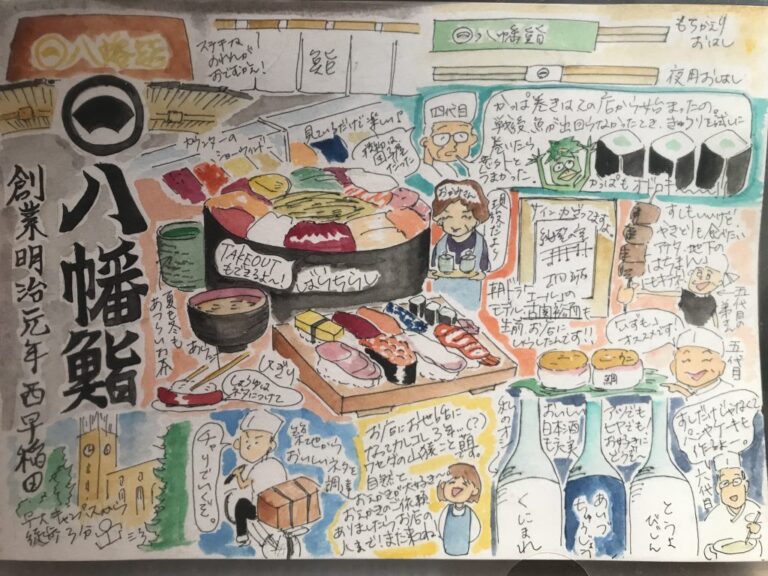 八幡鮨
ステキな
のれんが
おでむかえ!
鮨
八幡鮨
もちかえり
おはし
夜用おはし
八幡鮨
創業明治元年 西早稲田
カウンターの
ショーウィンドー
見ているだけで楽しい♪
四代目
かっぱ巻きはこの店から始まったの。
戦後、魚が出回らなかったとき、きゅうりを試しに
巻いたら
うまかった
かっぱも
おかみさん
頑張だよ〜
TAKEOUT
もできるよん!
ばらちらし
夏も冬も
あつーいお茶
しょうゆは
ネタにつけて
サイン
朝ドラ
「エール」の
モデル
古関裕而も
生前お店に
いらしたんです!!
すしもいいけど
やきとりも食べたい
アナタ、地下の
はちまん
にもキテネ
五代目の
弟さん
五代目
いずもう
オススメです!
鯛
チャリでいくぜ。
築地から
おいしいネタを
調達
早大キャンパスから
徒歩3分
お店にお世話に
なってカレコレ3年…(?)
ワセダの山塚ご と申
自然と
おえかきがスキなので
おえかきのご依頼
ありましたらお店の
人まで!また来てね
おいしい
日本酒
も充実
アツでも
ヒヤでも
お好きに
どうぞ
くにまれ
あいづ
ちゅうじょう
とうよ
びじん
すしだけじゃなくて
パンケーキも
作るよー。
六代目